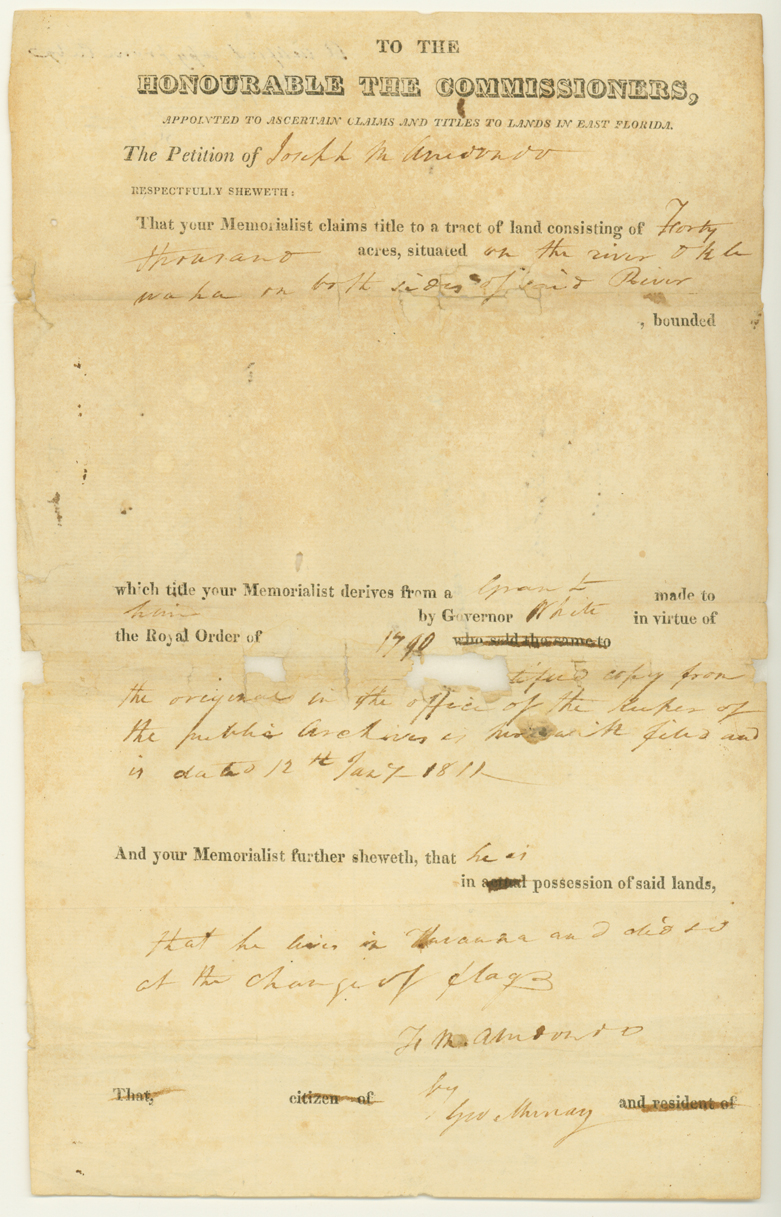 TO THE
HONOURABLE THE COMMISSIONERS,
APPOINTED TO ASCERTAIN CLAIMS AND TITLES TO LANDS IN EAST FLORIDA.
The Petition of Joseph M Arredondo
RESPECTFULLY SHEWETH:
That your Memorialist claims title to a tract of land consisting of Forty
thousand acres, situated on the river Okla
waha on both sides of said River
, bounded
which title your Memorialist derives from a Grant made to
him by Governor White in virtue of
the Royal Order of 1790 who sold the same to
tified copy from
the original in the office of the keeper of
the public Archives is herewith filed and
is dated 12th Jany 1811
And your Memorialist further sheweth, that he is
in actual possession of said lands,
that he lives in Havanna and did so
at the change of flags
M. Arredondo
by
That, citizen of Geo. Murray and resident of